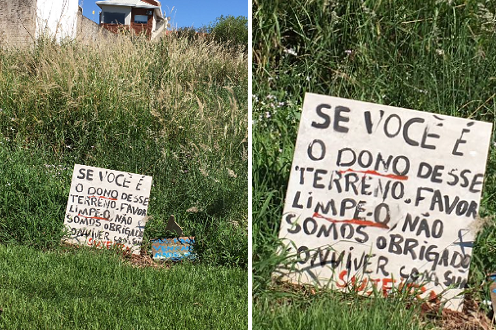 SE VOCÊ É
O DONO DESSE
TERRENO. FAVOR
LIMPE-O, NÃO
SOMOS OBRIGADO
CONVIVER COM SUA
SUJEIRA
SE VOCÊ É
O DONO DESSE
TERRENO. FAVOR
LIMPE-O, NÃO
SOMOS OBRIGADO
CONVIVER COM SUA